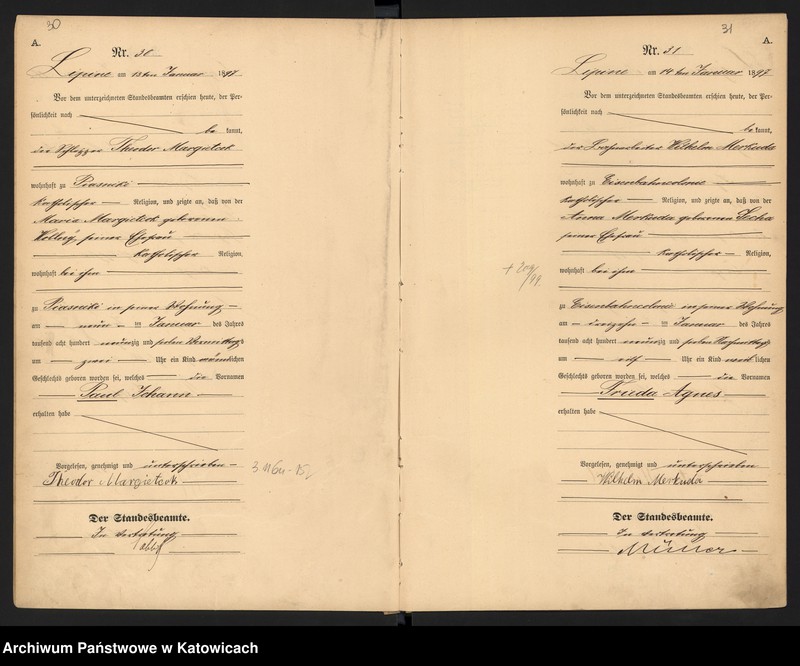 30
A.
Nr. 30
Lipine am 13ten Januar 1897
Vor dem unterzeichneten Standesbeamten erschien heute, der Per-
sönlichkeit nach
be kannt,
der Theodor Margieteck
wohnhaft zu Piasniki
katholischer Religion, und zeigte an, daß von der
Maria Margieteck geborenen
seiner Ehefrau
katholischer Religion,
wohnhaft bei ihm
zu Piasniki in seiner Wohnung
am neun ten Januar des Jahres
tausend acht hundert neunzig und sieben Vormittags
um zwei Uhr ein Kind männlichen
Geschlechts geboren worden sei, welches die Vornamen
Paul Johann
erhalten habe
Vorgelesen, genehmigt und unterschrieben
Theodor Margieteck
Der Standesbeamte.
In Vertretung
31
A.
Nr. 31
Lipine am 14ten Januar 1897
Vor dem unterzeichneten Standesbeamten erschien heute, der Per-
sönlichkeit nach
be kannt,
der Wilhelm Merkuda
wohnhaft zu Eisenbahncolonie
katholischer Religion, und zeigte an, daß von der
Anna Merkuda geborenen
seiner Ehefrau
katholischer Religion,
wohnhaft bei ihm
zu Eisenbahncolonie in seiner Wohnung
am dreizehn ten Januar des Jahres
tausend acht hundert neunzig und sieben Nachmittags
um Uhr ein Kind weiblichen
Geschlechts geboren worden sei, welches die Vornamen
Frieda Agnes
erhalten habe
Vorgelesen, genehmigt und unterschrieben
Wilhelm Merkuda
Der Standesbeamte.
In Vertretung
Müller
Archiwum Państwowe w Katowicach